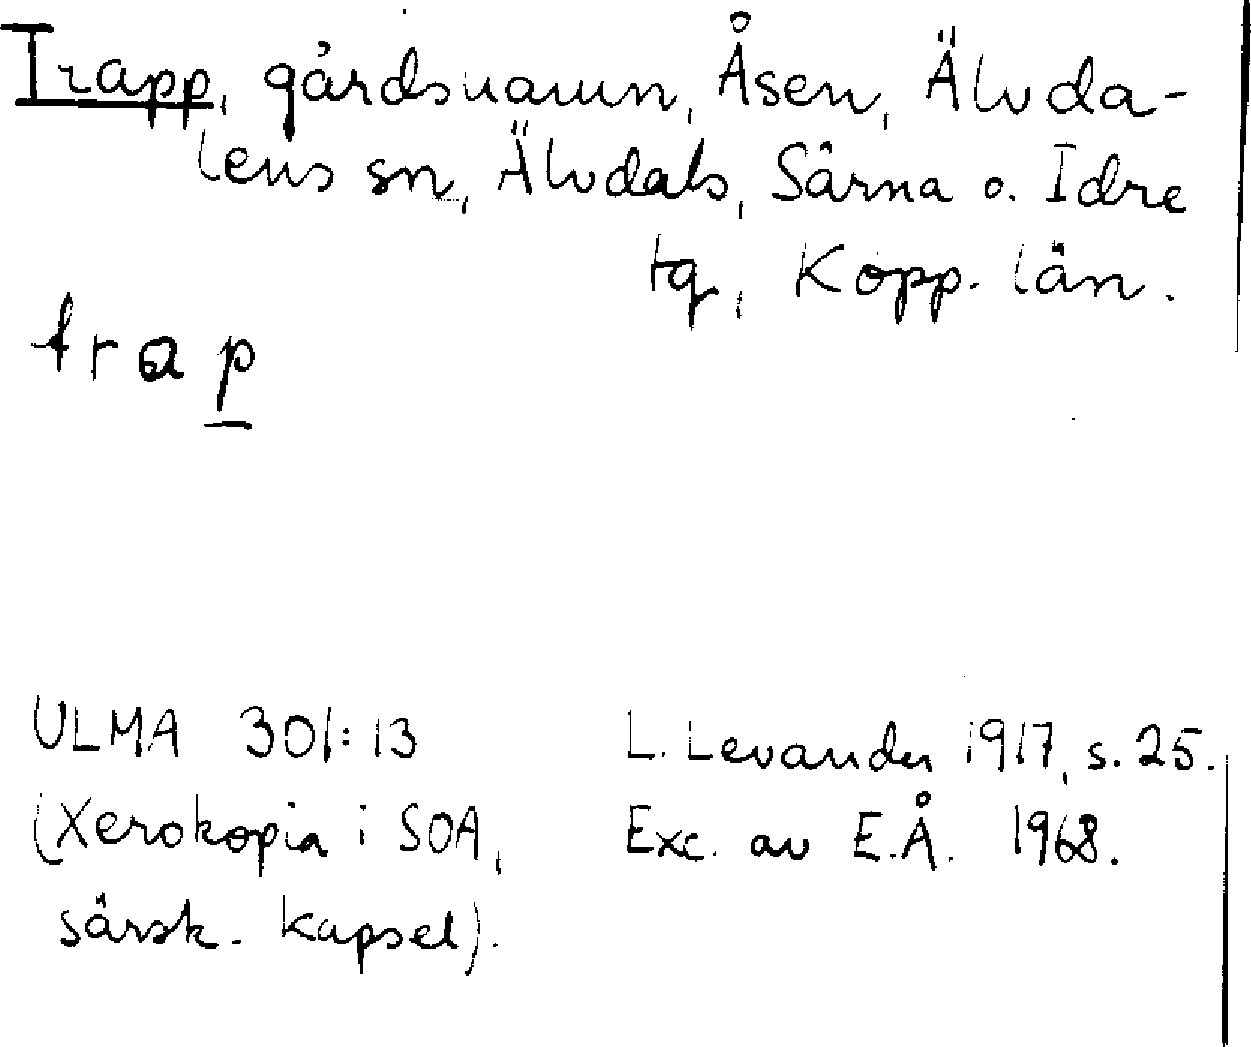 Trapp, gårdsnamn, Åsen, Älvda-
lens sn, Älvdals, Särna o. Idre
tg, Kopp. län.
trap
ULMA 301:13 L. Levander 1917, s. 25.
(Xerokopia i SOA, Exc. av E.Å. 1968.
särsk. kapsel).